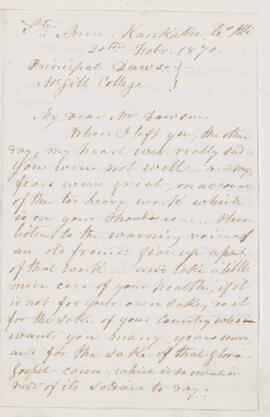 Ste Anne - Kankakee Co. Ills
20th Febr. 1870.
Principal Dawson }
McGill College
My Dear Mr Dawson
When I left you, the other
day, my heart was really sad -
you were not well - and my
fears were great, on account
of the too heavy work which
is on your shoulders ... Please
listen to the warning voice of
an old friend: give up a part
of that work - and take a little
more care of your health, if it
is not for your own sake, do it
for the sake of your Country which
wants you many years more
and for the sake of that glorious
gospel cause, which is so much in
need of its soldiers to day.